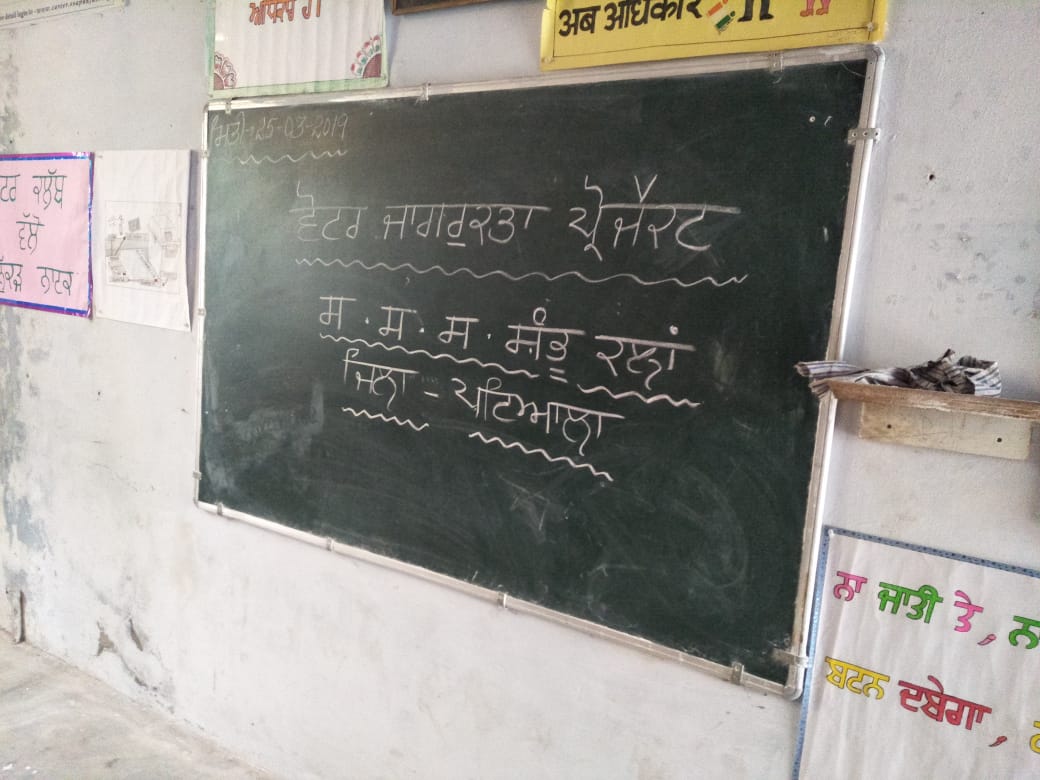 ਅਬ अधिकार
ਟਰ ਕਲੱਬ
ਵੱਲੋਂ
ਨੁੱਕੜ ਨਾਟਕ
ਮਿਤੀ-25-03-2019
ਵੋਟਰ ਜਾਗਰੁਕਤਾ ਪ੍ਰੋਜੈਕਟ
ਸ.ਸ.ਸ. ਸ਼ੰਭੂ ਕਲਾਂ
ਜਿਲਾ - ਪਟਿਆਲਾ
ਨਾ ਜਾਤੀ ਤੇ, ਨਾ
ਬਟਨ ਦਬੇਗਾ,